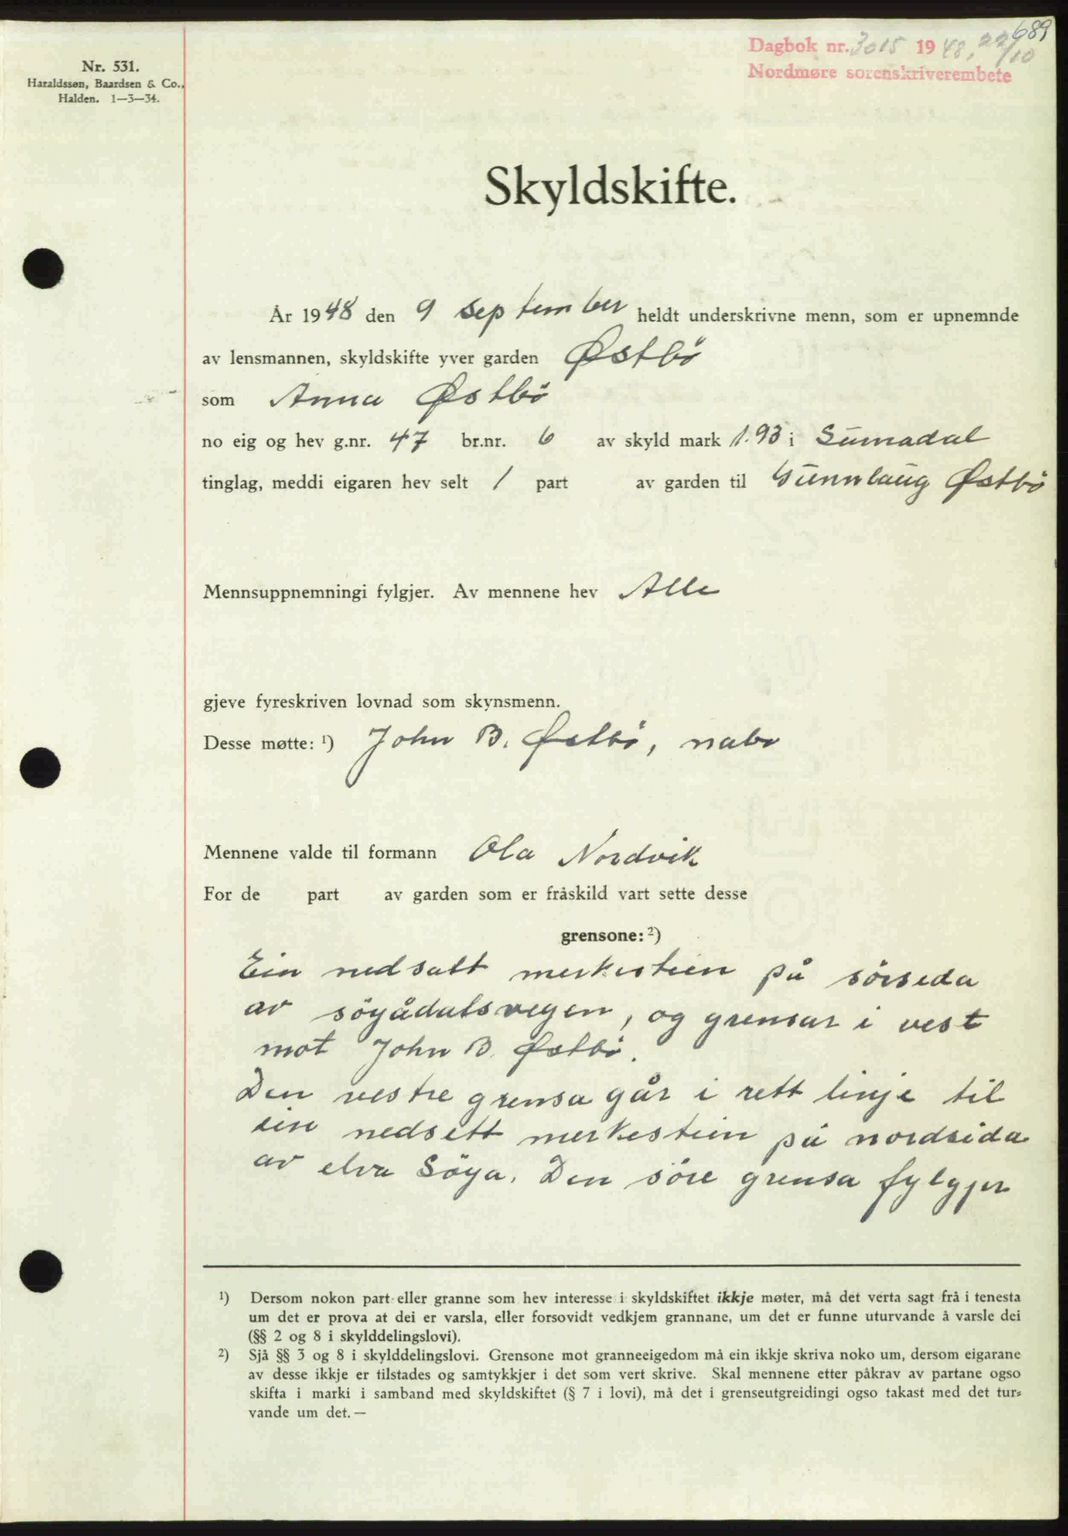 689
Dagbok nr. 3015 1948, 22/10
Nordmøre sorenskriverembete
Nr. 531.
Haraldssøn, Baardsen & Co.,
Halden. 1—3—34.
Skyldskifte.
År 1948 den 9 september heldt underskrivne menn, som er upnemnde
av lensmannen, skyldskifte yver garden Østbö
som Anna Østbö
no eig og hev g.nr. 47 br.nr. 6 av skyld mark 1.93 i Surnadal
tinglag, meddi eigaren hev selt 1 part av garden til Gunnlaug Østbö
Mennsuppnemningi fylgjer. Av mennene hev Alle
gjeve fyreskriven lovnad som skynsmenn.
Desse møtte: ¹) John B. Østbö, nabo
Mennene valde til formann Ola Nordvik
For de part av garden som er fråskild vart sette desse
grensone: ²)
Ein nedsatt merkestein på sörsida
av söyådalsvegen, og grensar i vest
mot John B. Østbö.
Den vestre grensa går i rett linje til
ein nedsett merkestein på nordsida
av elva Söya. Den söre grensa fylgjer
¹) Dersom nokon part eller granne som hev interesse i skyldskiftet ikkje møter, må det verta sagt frå i tenesta
um det er prova at dei er varsla, eller forsovidt vedkjem grannane, um det er funne uturvande å varsle dei
(§§ 2 og 8 i skylddelingslovi).
²) Sjå §§ 3 og 8 i skylddelingslovi. Grensone mot granneeigedom må ein ikkje skriva noko um, dersom eigarane
av desse ikkje er tilstades og samtykkjer i det som vert skrive. Skal mennene etter påkrav av partane ogso
skifta i marki i samband med skyldskiftet (§ 7 i lovi), må det i grenseutgreidingi ogso takast med det tur-
vande um det. —